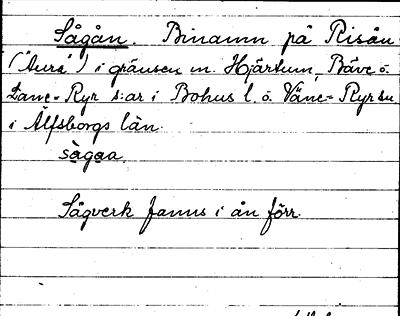 Sågån. Binamn på Risån
("Aura") i gränsen m. Hjärtum, Bäve o.
Lane-Ryr s:ar i Bohus l. o. Väne-Ryr su
i Älfsborgs län.
sågaa
Sågverk fanns i ån förr.